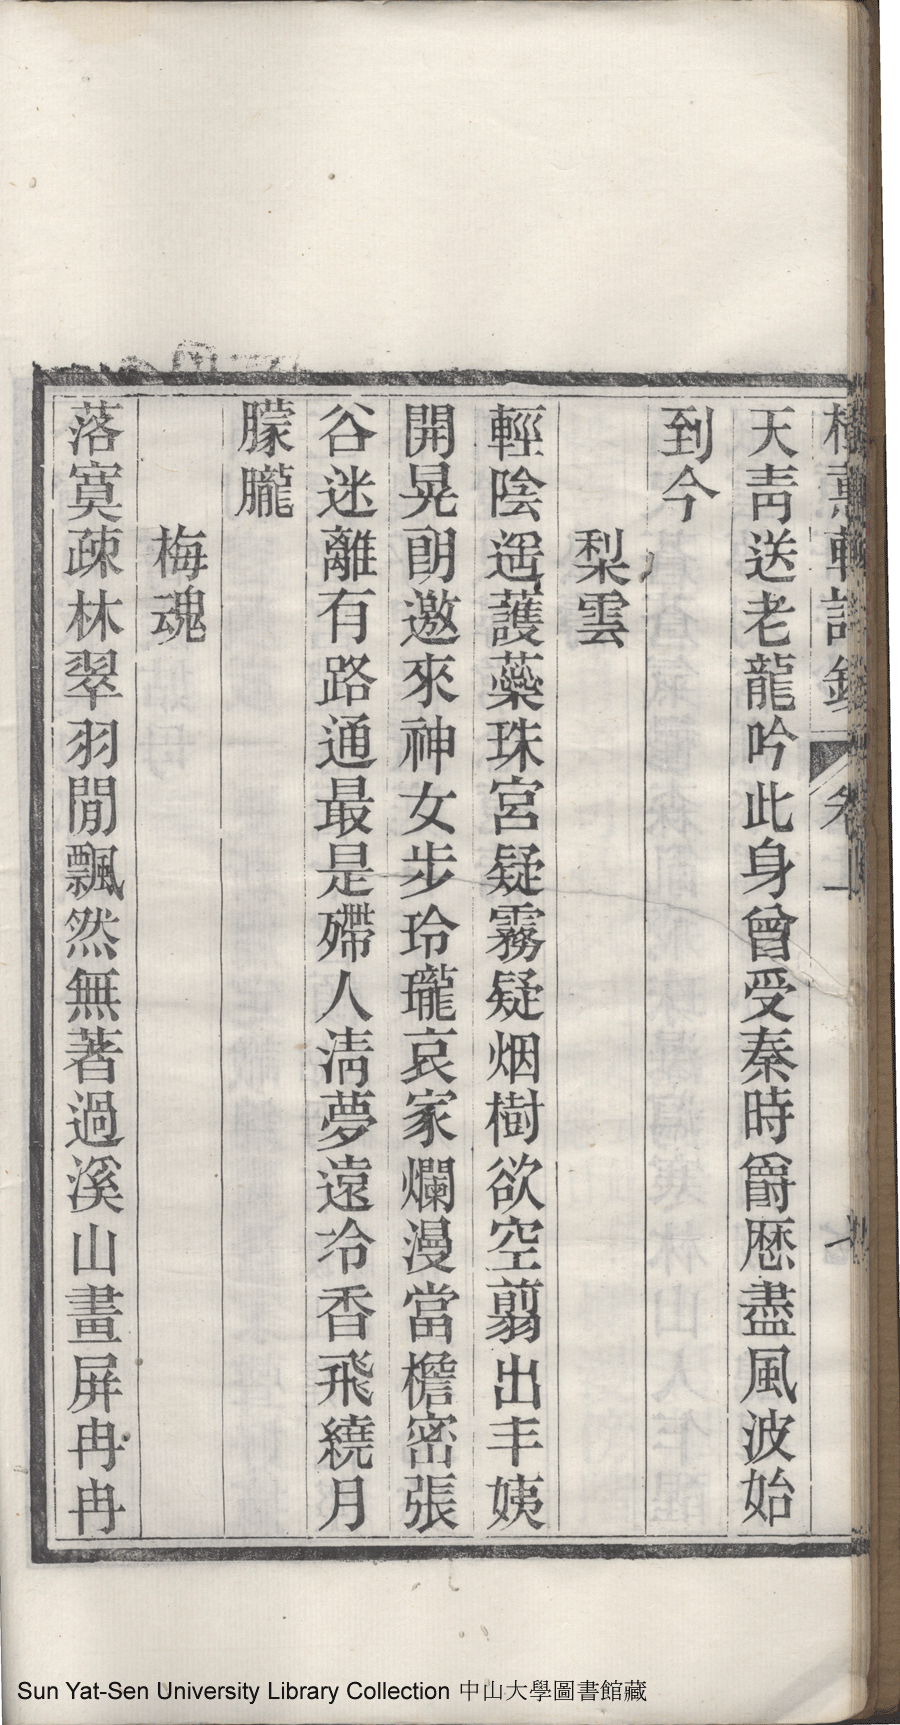 軒詩鈔 卷上
天靑送老龍吟此身曾受秦時爵歴盡風波始
到今
梨雲
輕陰遥護蘂珠宮疑霧疑烟樹欲空翦出丰姨
開晃朗邀來神女步玲瓏哀家爛漫當檐密張
谷迷離有路通最是殢人淸夢遠冷香飛繞月
朦朧
梅魂
落寞疎林翠羽閒飄然無著過溪山畫屏冉冉
Sun Yat-Sen University Library Collection 中山大學圖書館藏